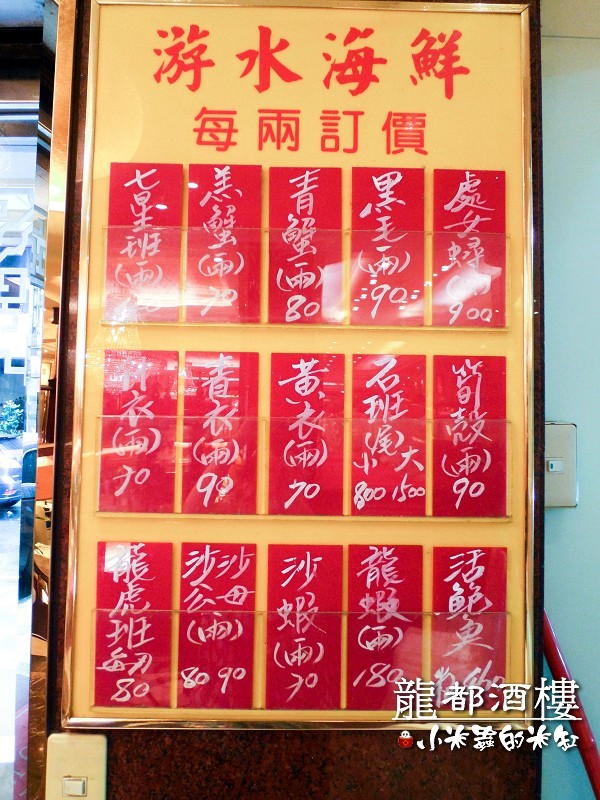 游水海鮮
每兩訂價
處女蟳
900
黑毛(兩)
90
青蟹(兩)
80
羔蟹(兩)
70
七星斑(兩)
筍殼(兩)
90
石斑(尾)
小 大
800 1500
黃衣(兩)
70
青衣(兩)
90
衣(兩)
70
活鮑魚
龍蝦(兩)
180
沙蝦(兩)
70
沙公 沙母
(兩)
80 90
龍虎斑
80
龍都酒樓
小米蟲的米缸